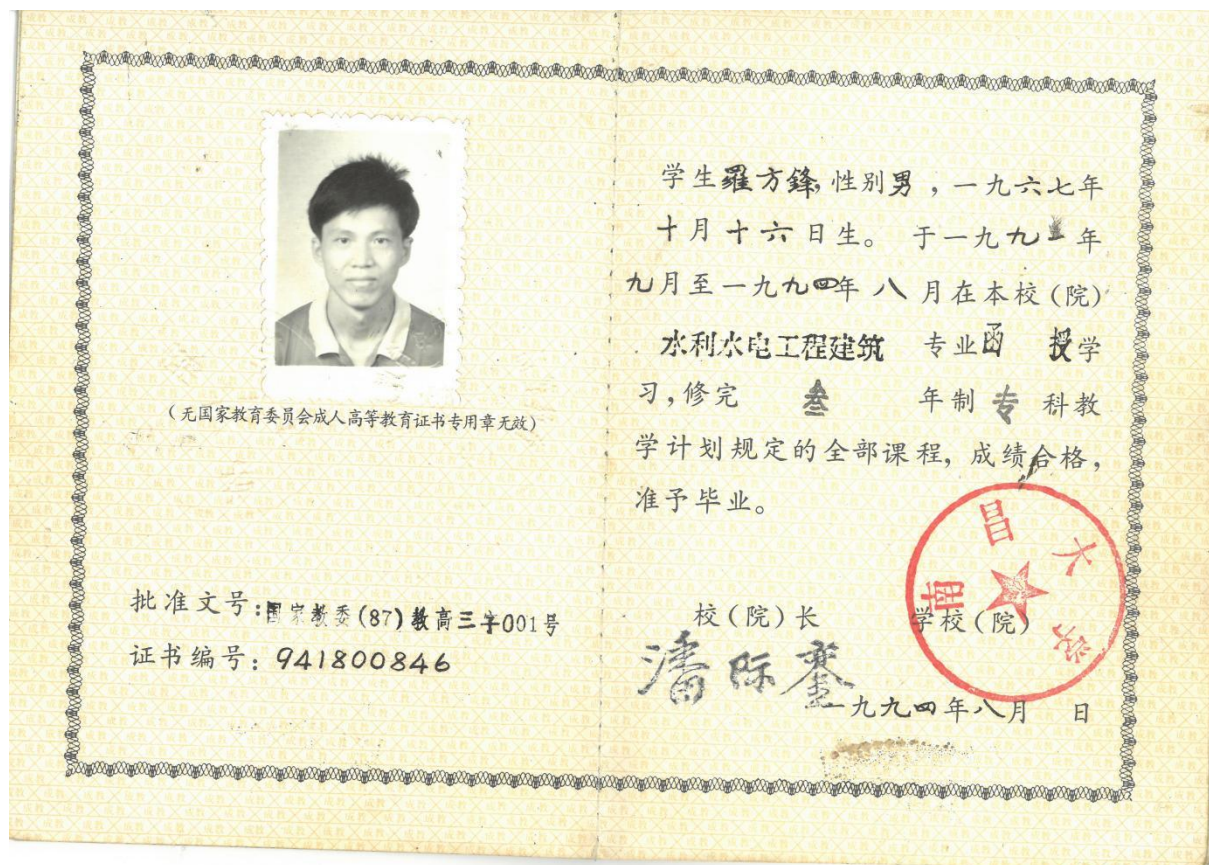 (无国家教育委员会成人高等教育证书专用章无效)
批准文号:国家教委(87)教高三字001号
证书编号:941800846
学生羅方鋒,性别男,一九六七年
十月十六日生。 于一九九 年
九月至一九九四年 八 月在本校(院)
水利水电工程建筑 专业函 授学
习,修完 叁 年制 专 科教
学计划规定的全部课程,成绩合格,
准予毕业。
校(院)长 学校(院)
潘际銮
南昌大学
一九九四年八月 日